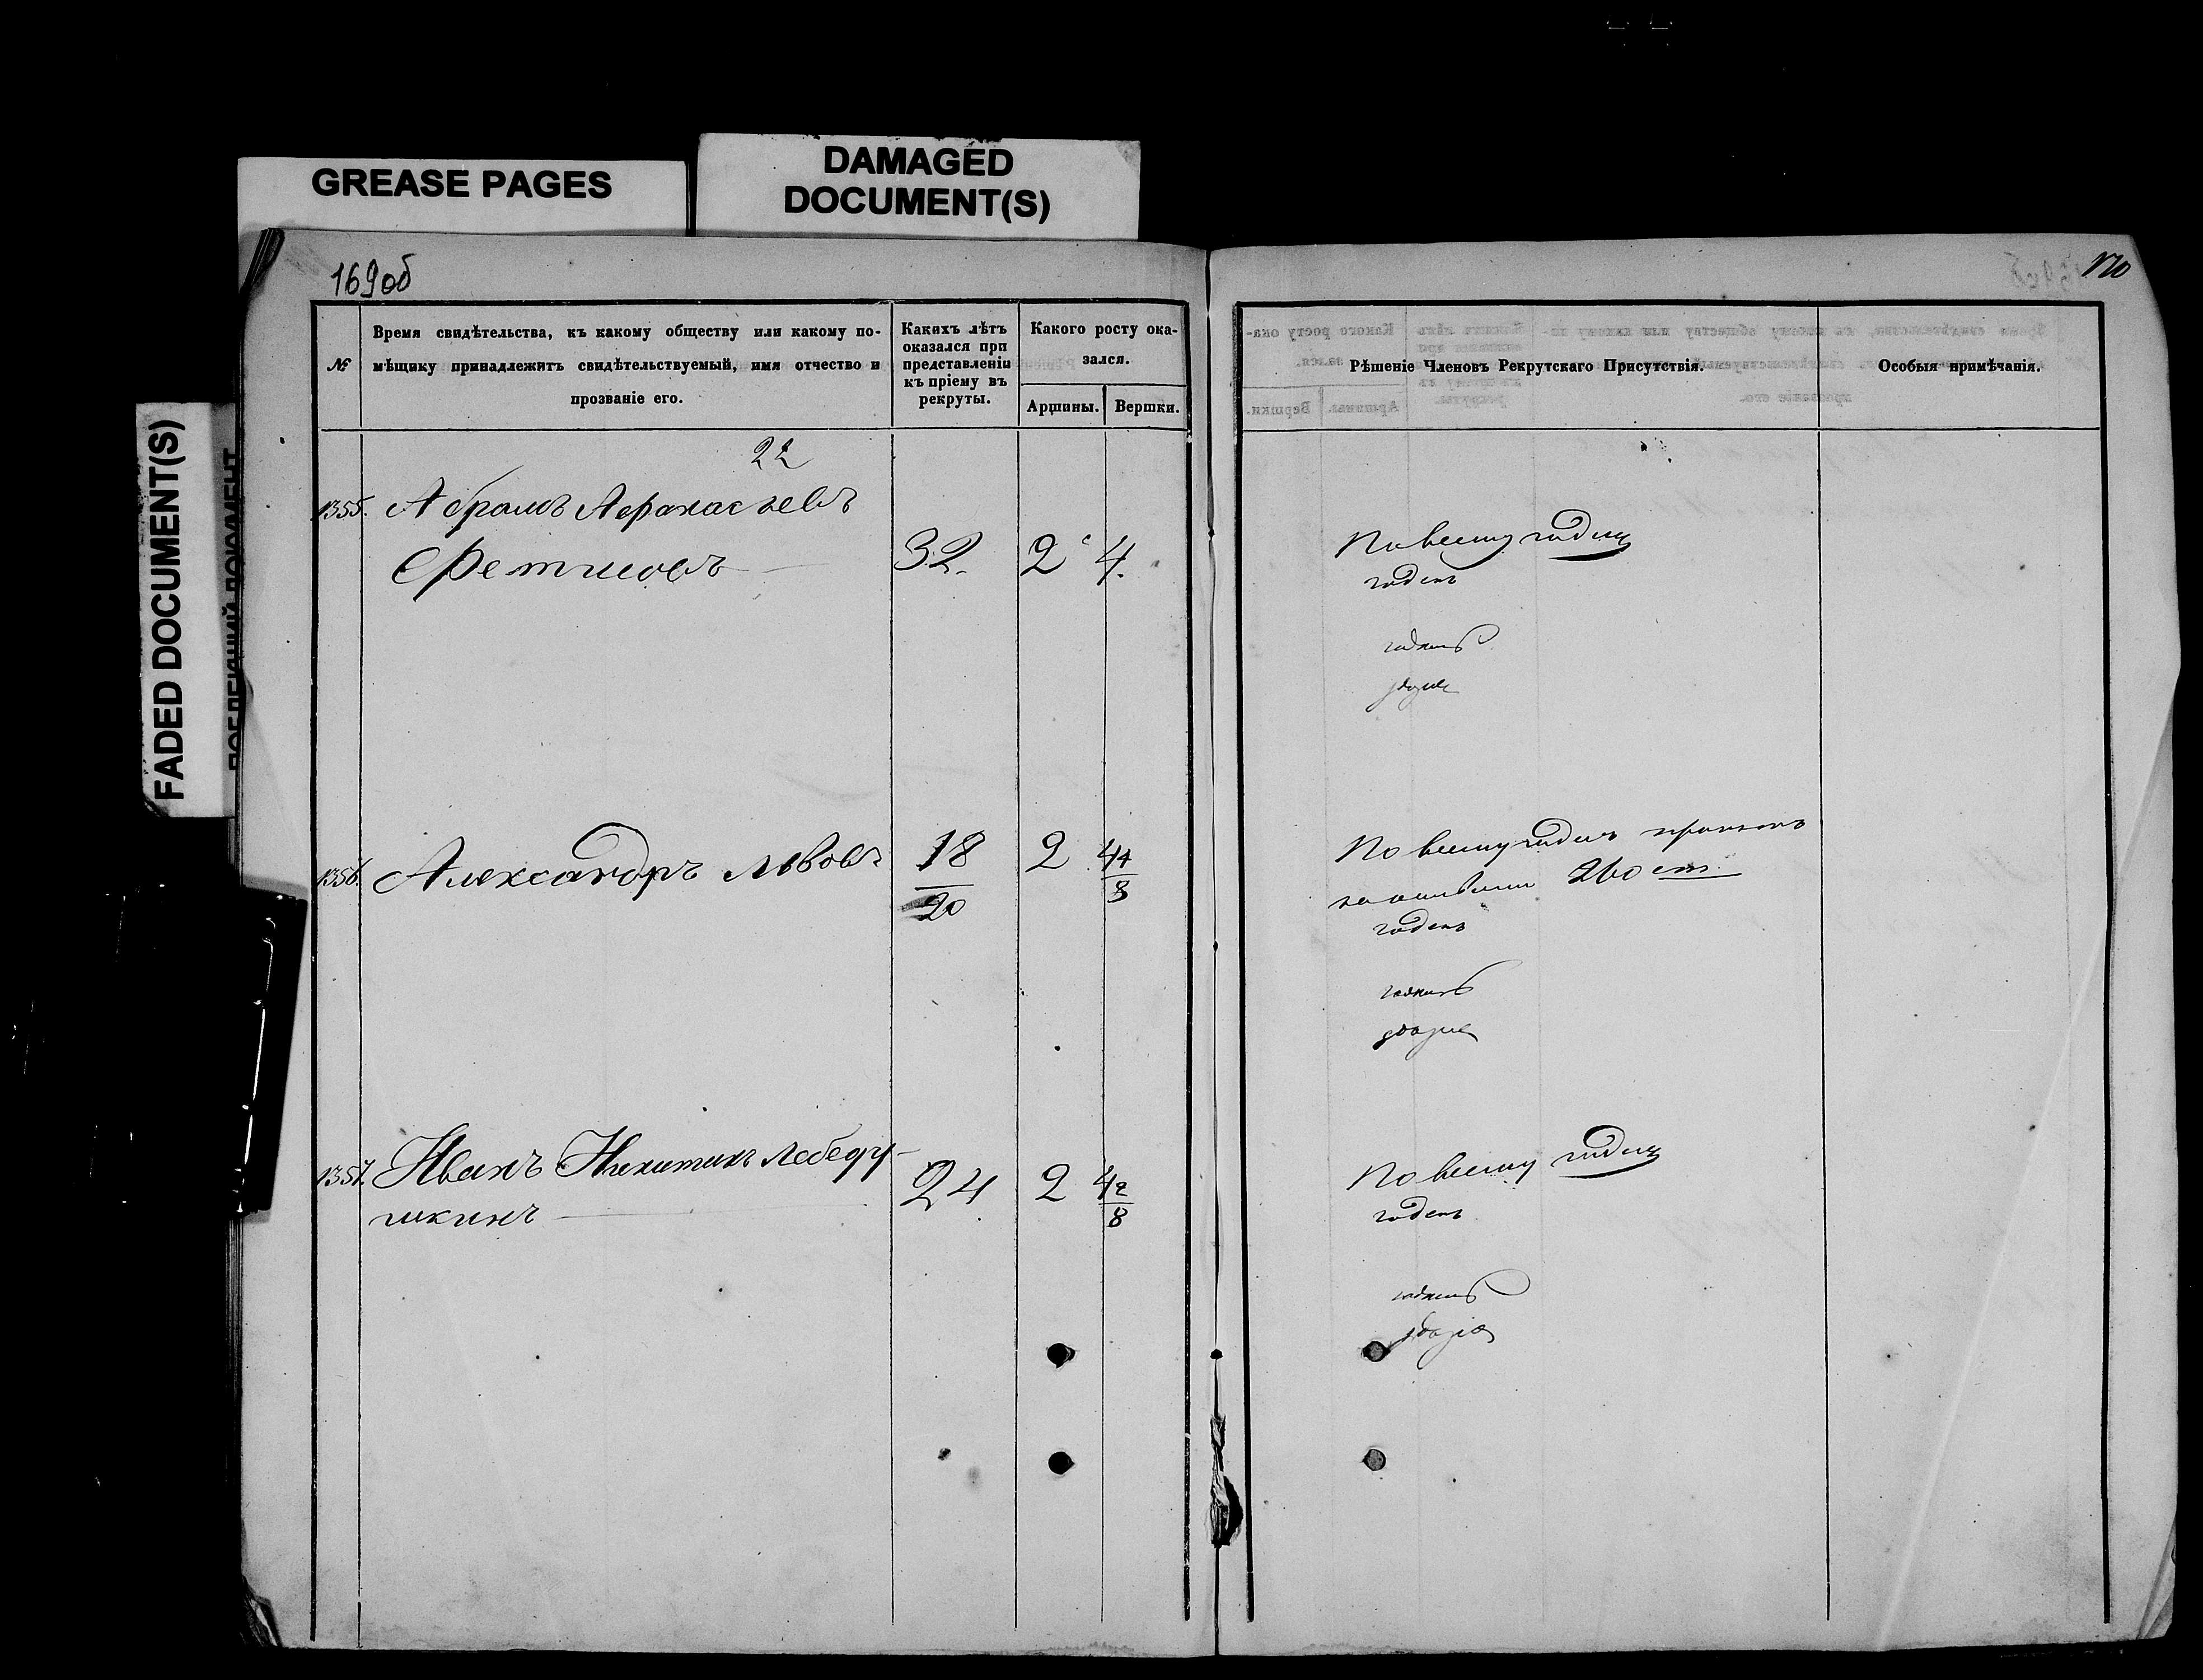 GREASE PAGES
DAMAGED
DOCUMENT(S)
FADED DOCUMENT(S)
169об
170
№
Время свидѣтельства, къ какому обществу или какому по-
мѣщику принадлежитъ свидѣтельствуемый, имя отчество и
прозваніе его.
Какихъ лѣтъ
оказался при
представленіи
къ пріему въ
рекруты.
Какого росту ока-
зался.
Аршины.
Вершки.
Рѣшеніе Членовъ Рекрутскаго Присутствія.
Особыя примѣчанія.
22
1355. Абрамъ Афанасьевъ
Фетисовъ 32. 2 4.
По всему годенъ
годенъ
годенъ
1356. Александръ Львовъ 18/20 2 4 4/8
По всему годенъ
годенъ
годенъ
1357. Иванъ Никитинъ Лебеду-
шкинъ 24 2 4 2/8
По всему годенъ
годенъ
годенъ